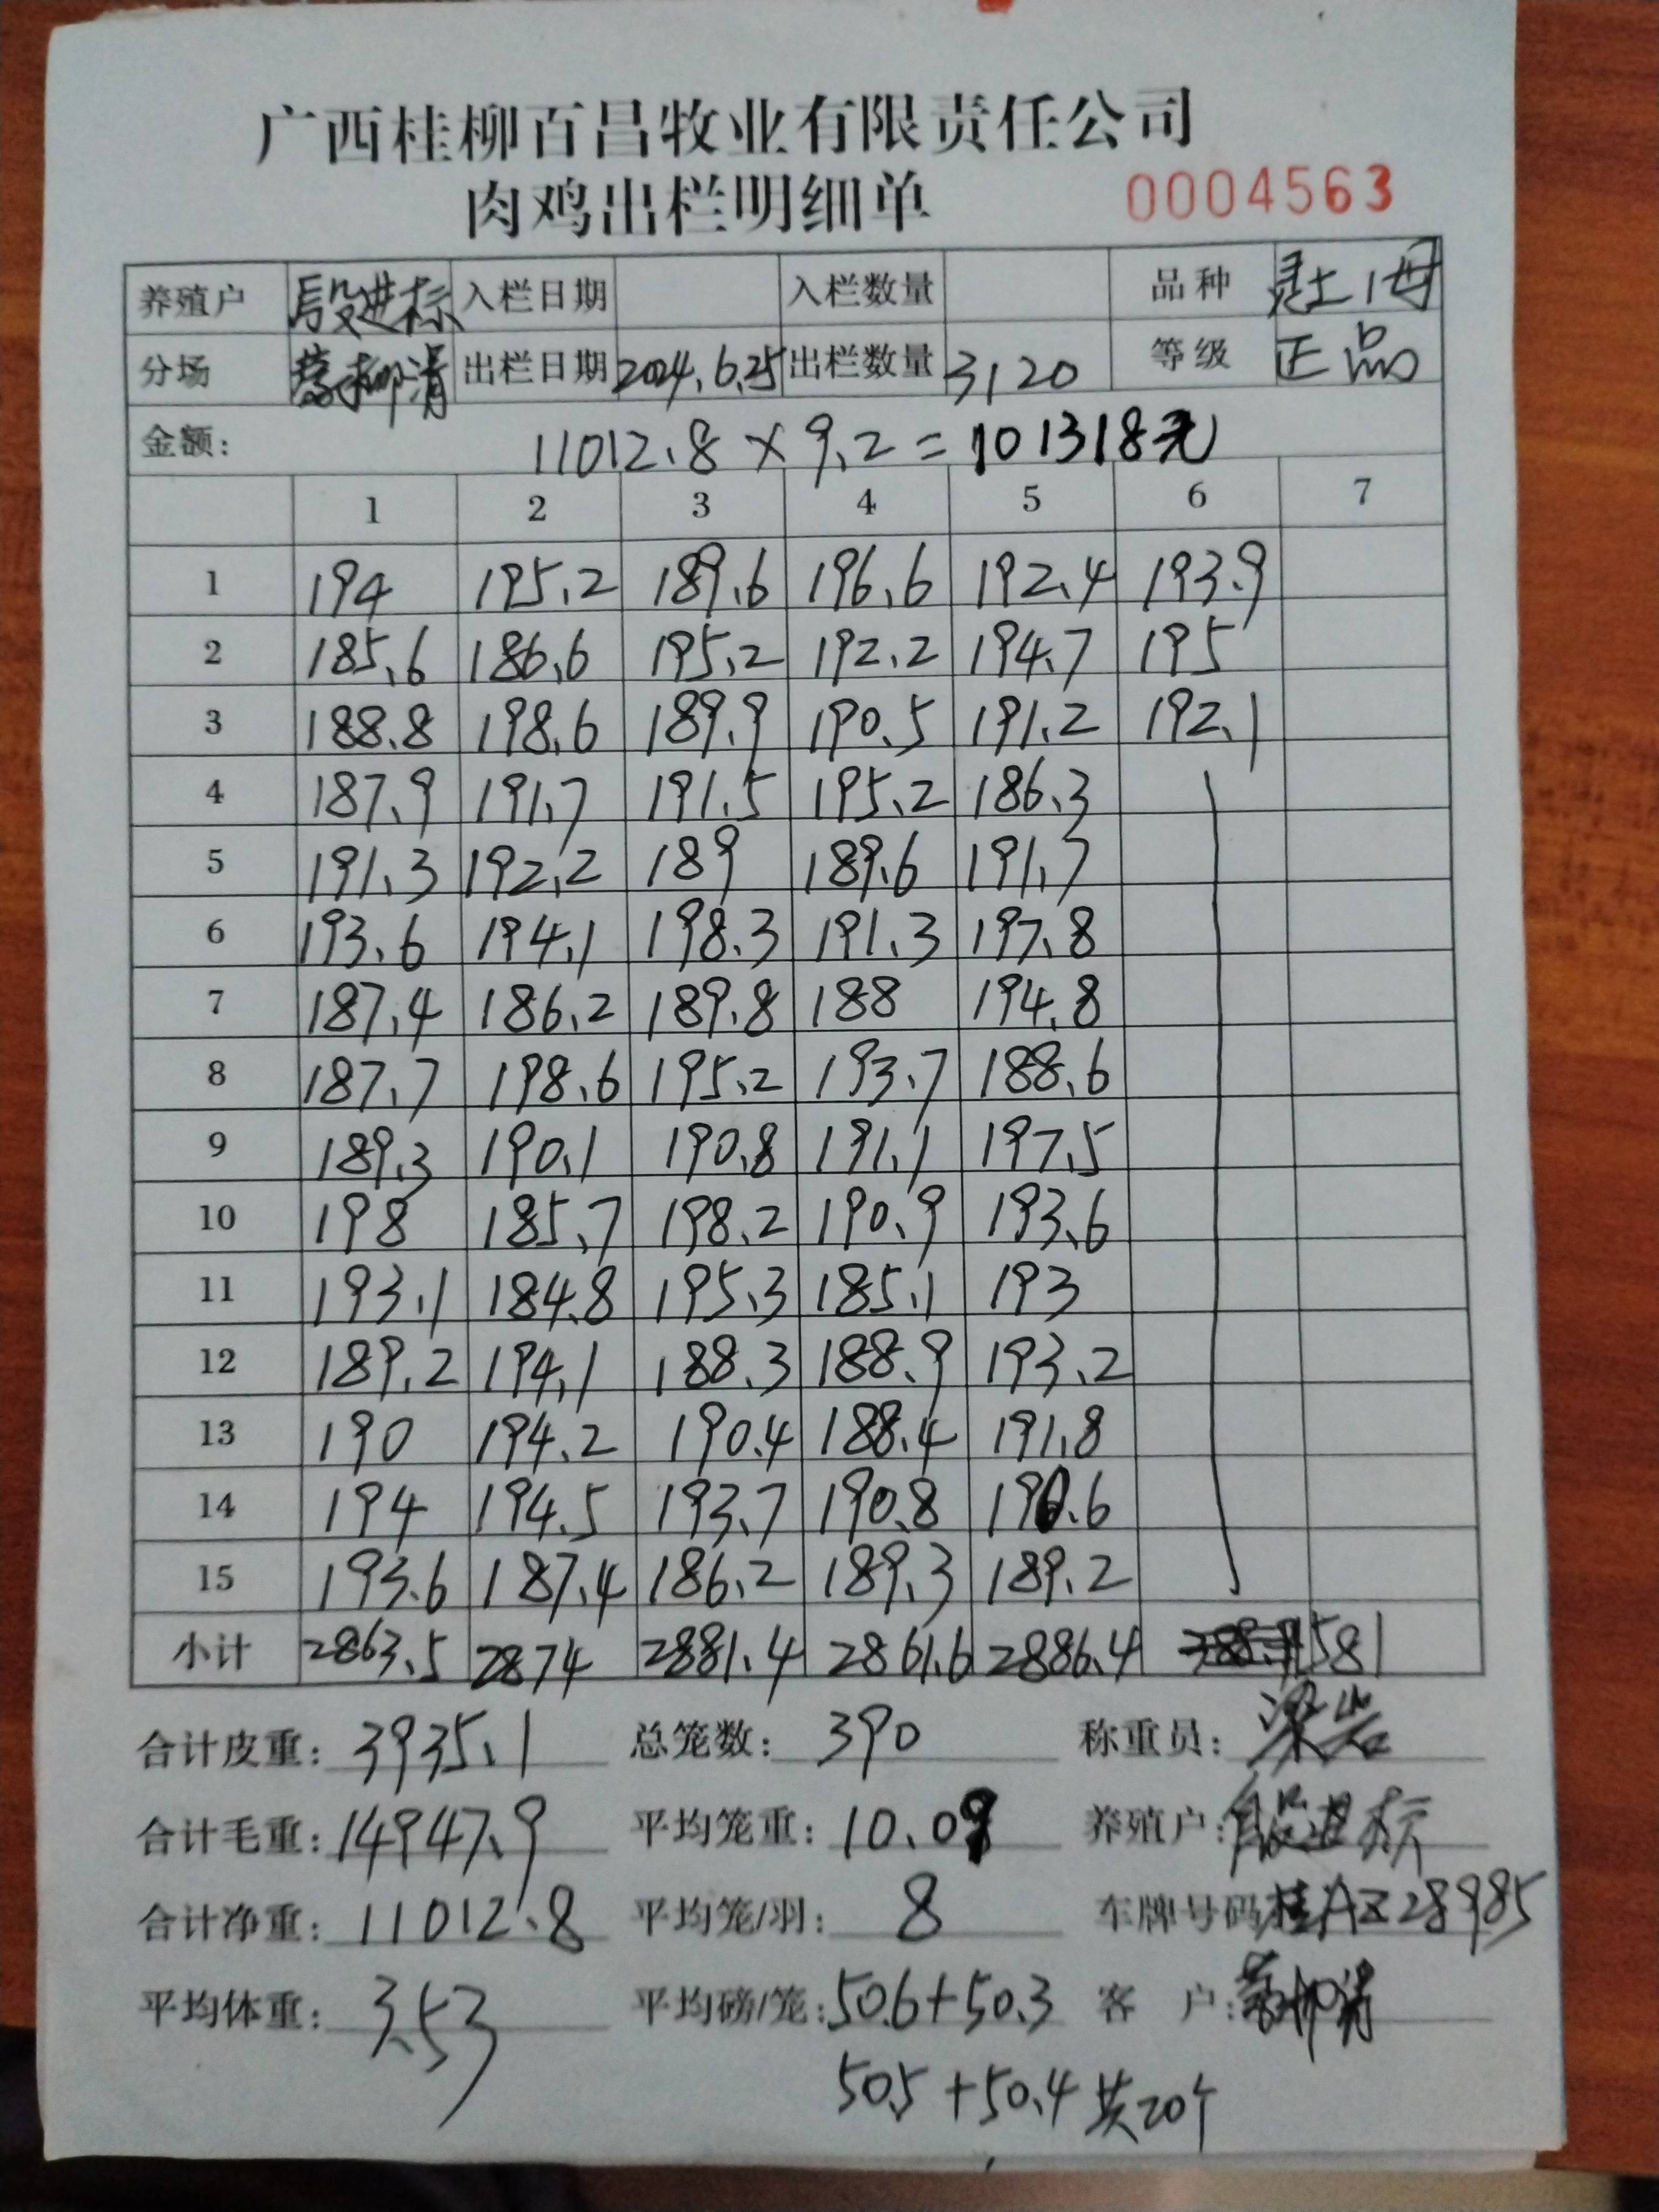 广西桂柳百昌牧业有限责任公司
肉鸡出栏明细单 0004563
养殖户 段进标 入栏日期 入栏数量 品种 灵土1母
分场 蔡柳清 出栏日期 2024.6.25 出栏数量 3120 等级 正品
金额: 11012.8×9.2=101318元
1 2 3 4 5 6 7
1 194 195.2 189.6 196.6 192.4 193.9
2 185.6 186.6 195.2 192.2 194.7 195
3 188.8 198.6 189.9 190.5 191.2 192.1
4 187.9 191.7 191.5 195.2 186.3
5 191.3 192.2 189 189.6 191.7
6 193.6 194.1 198.3 191.3 197.8
7 187.4 186.2 189.8 188 194.8
8 187.7 198.6 195.2 193.7 188.6
9 189.3 190.1 190.8 191.1 197.5
10 198 185.7 198.2 190.9 193.6
11 193.1 184.8 195.3 185.1 193
12 189.2 194.1 188.3 188.9 193.2
13 190 194.2 190.4 188.4 191.8
14 194 194.5 193.7 190.8 190.6
15 193.6 187.4 186.2 189.3 189.2
小计 2863.5 2874 2881.4 2861.6 2886.4 581
合计皮重: 3935.1 总笼数: 390 称重员: 梁岩
合计毛重: 14947.9 平均笼重: 10.09 养殖户: 段进标
合计净重: 11012.8 平均笼/羽: 8 车牌号码 桂AZ28985
平均体重: 3.53 平均磅/笼: 50.6+50.3 客 户: 蔡柳清
50.5+50.4 共20个